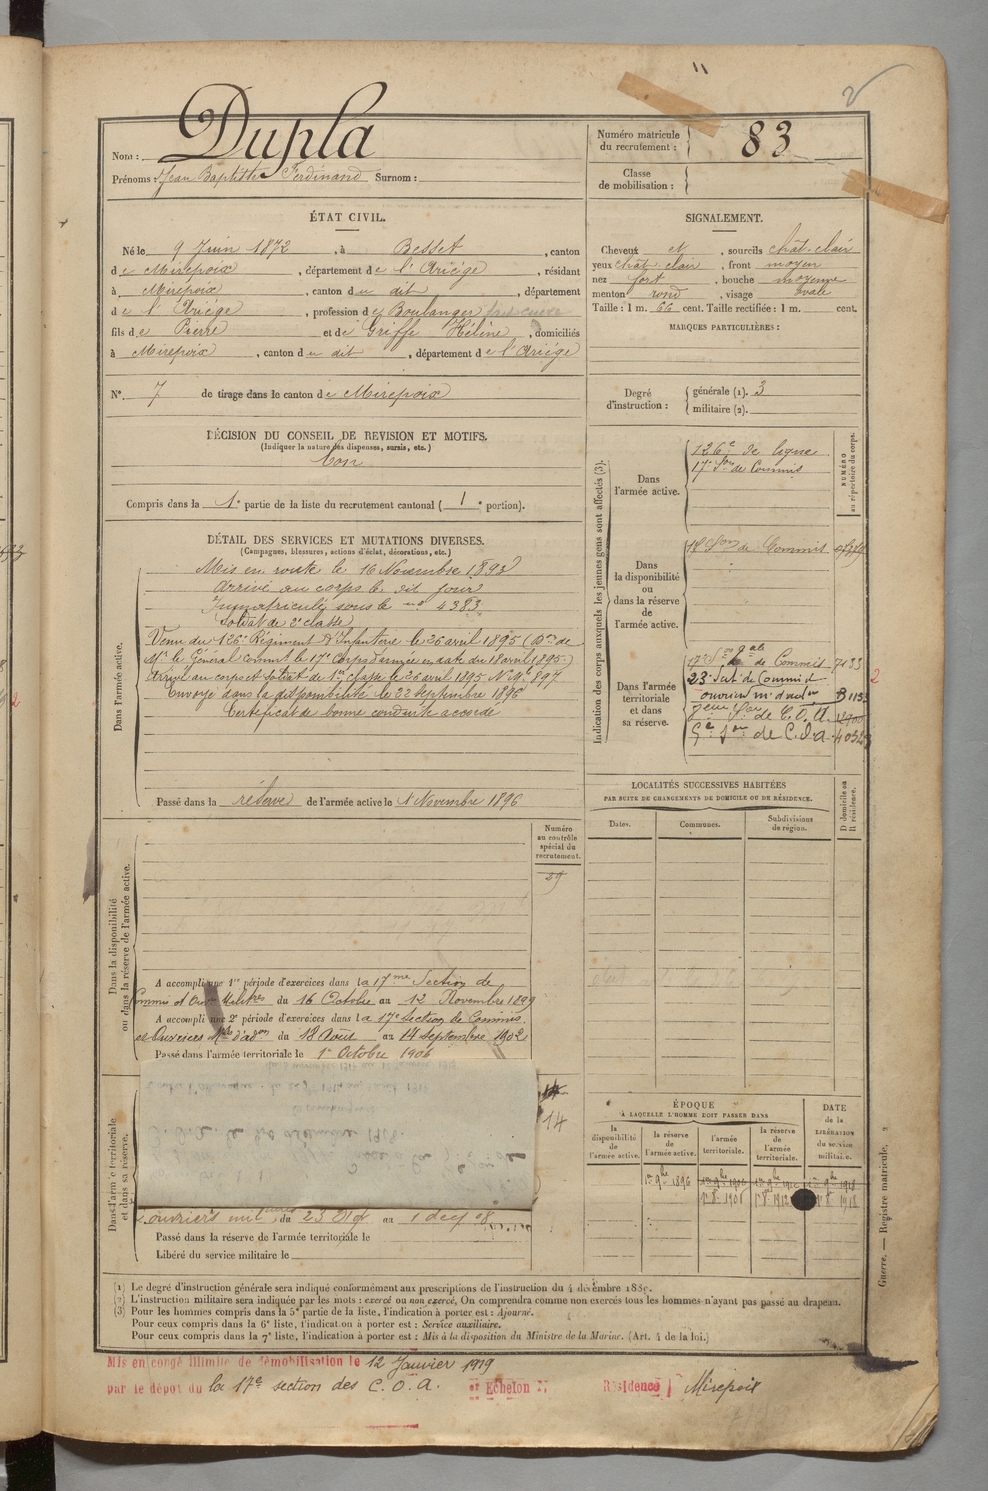 Nom : Dupla
Prénoms Jean Baptiste Ferdinand Surnom :
Numéro matricule du recrutement : 83
Classe de mobilisation :
ÉTAT CIVIL.
Né le 9 Juin 1872, à Besset, canton
de Mirepoix, département de l'Ariége, résidant
à Mirepoix, canton du dit, département
de l'Ariége, profession de Boulanger
fils de Pierre et de Griffe Hélène, domiciliés
à Mirepoix, canton du dit, département de l'Ariége
SIGNALEMENT.
Cheveux et, sourcils chât-clair
yeux chât-clair, front moyen
nez fort, bouche moyenne
menton rond, visage ovale
Taille : 1 m. 66 cent. Taille rectifiée : 1 m. cent.
MARQUES PARTICULIÈRES :
N°. 7 de tirage dans le canton de Mirepoix
Degré d'instruction : générale (1). 3
militaire (2).
DÉCISION DU CONSEIL DE REVISION ET MOTIFS.
(Indiquer la nature des dispenses, sursis, etc.)
bon
Compris dans la 1e partie de la liste du recrutement cantonal (1e portion).
DÉTAIL DES SERVICES ET MUTATIONS DIVERSES.
(Campagnes, blessures, actions d'éclat, décorations, etc.)
Dans l'armée active.
Mis en route le 16 Novembre 1893
Arrivé au corps le dit jour
Immatriculé sous le no 4383
Soldat de 2e classe
Venu du 126e Régiment d'Infanterie le 26 avril 1895 (Don de
Mr le Général Commt le 17e Corps d'armée en date du 18 avril 1895.)
Arrivé au corps et soldat de 1re classe le 26 avril 1895 No Mle 897
Envoyé dans la disponibilité le 22 septembre 1896
Certificat de bonne conduite accordé
Passé dans la réserve de l'armée active le 1 Novembre 1896
Indication des corps auxquels les jeunes gens sont affectés (3).
NUMÉRO au répertoire du corps.
Dans l'armée active.
126e de ligne
17e Son de Commis
Dans la disponibilité ou dans la réserve de l'armée active.
18 Son de Commis
Dans l'armée territoriale et dans sa réserve.
17e Son de Commis 7133
23 de Commis
ouvrier m d'adon B 1133
Son de C.O.A.
Son de C.O.A
2
LOCALITÉS SUCCESSIVES HABITÉES
PAR SUITE DE CHANGEMENTS DE DOMICILE OU DE RÉSIDENCE.
D domicile ou R résidence.
Dates. Communes. Subdivisions de région.
Dans la disponibilité ou dans la réserve de l'armée active.
Numéro au contrôle spécial du recrutement.
29
A accompli une 1re période d'exercices dans la 17me Section de
Commis et Ouv Militres du 16 Octobre au 12 Novembre 1899
A accompli une 2e période d'exercices dans la 17e Section de Commis
et Ouvriers Mres d'adon du 18 Août au 14 Septembre 1902
Passé dans l'armée territoriale le 1er Octobre 1906
Dans l'armée territoriale et dans sa réserve.
14
ouvriers militaires du 23 au 1 08
Passé dans la réserve de l'armée territoriale le
Libéré du service militaire le
ÉPOQUE
A LAQUELLE L'HOMME DOIT PASSER DANS
la disponibilité de l'armée active.
la réserve de l'armée active.
l'armée territoriale.
la réserve de l'armée territoriale.
DATE de la LIBÉRATION du service militaire.
1er 9bre 1896 1er 9bre 1906 1er 9bre 1912 1er 9bre 1918
1er 8 1906 1er 8 1912 1918
Guerre. — Registre matricule.
(1) Le degré d'instruction générale sera indiqué conformément aux prescriptions de l'instruction du 4 décembre 1889.
(2) L'instruction militaire sera indiquée par les mots : exercé ou non exercé, On comprendra comme non exercés tous les hommes n'ayant pas passé au drapeau.
(3) Pour les hommes compris dans la 5e partie de la liste, l'indication à porter est : Ajourné.
Pour ceux compris dans la 6e liste, l'indication à porter est : Service auxiliaire.
Pour ceux compris dans la 7e liste, l'indication à porter est : Mis à la disposition du Ministre de la Marine. (Art. 4 de la loi.)
Mis en congé illimité de démobilisation le 12 Janvier 1919
par le dépôt du la 17e section des C.O.A. et Échelon Résidence Mirepoix